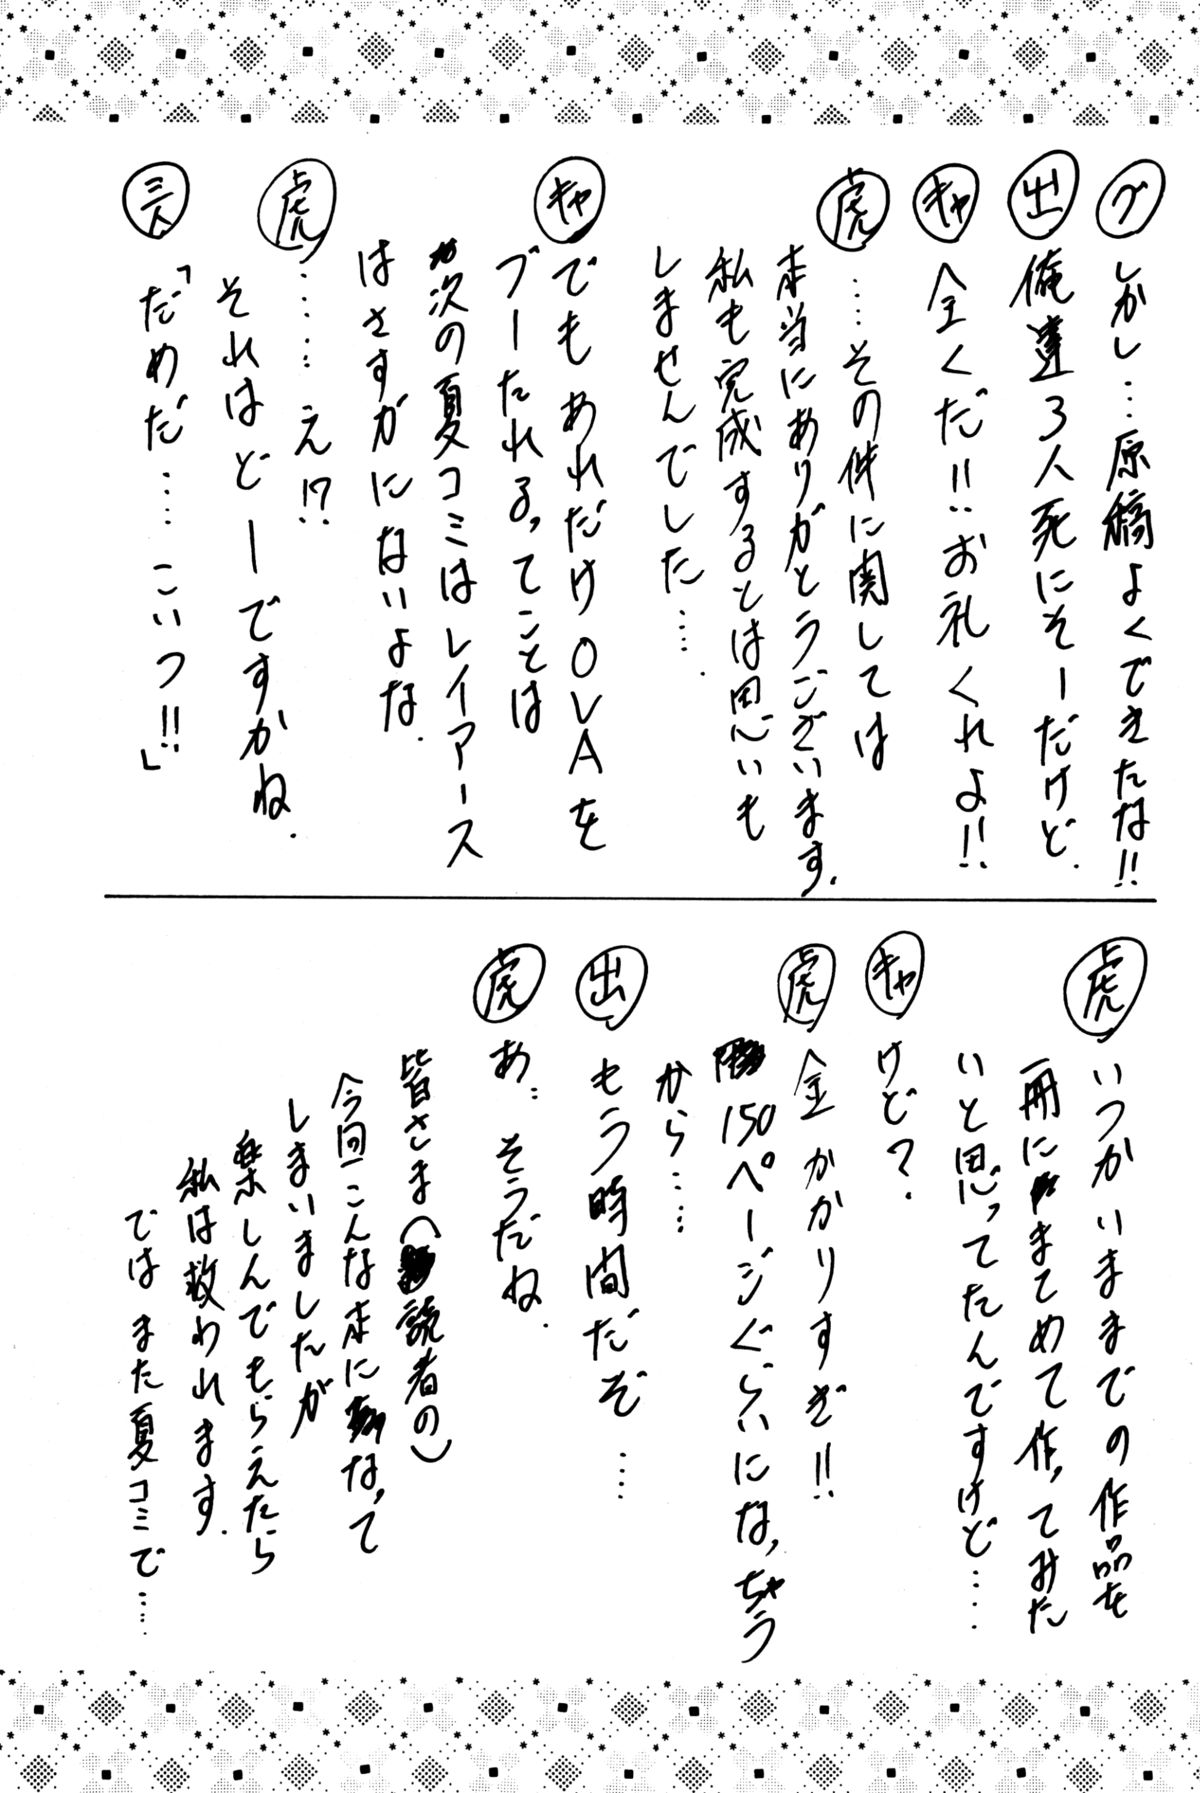 グ しかし…原稿よくできたな!!
出 俺達3人死にそーだけど.
キャ 全くだ!!お礼くれよ!!
虎 ……その件に関しては
本当にありがとうございます.
私も完成するとは思いも
しませんでした….
キャ でもあれだけOVAを
ブーたれるってことは
次の夏コミはレイアース
はさすがにないよな.
虎 ……え!?
それはどーですかね.
三人 「だめだ……こいつ!!」
虎 いつかいままでの作品を
一冊にまとめて作ってみた
いと思ってたんですけど……
キャ けど?
虎 金かかりすぎ!!
150ページぐらいになっちゃう
から……
出 もう時間だぞ……
虎 あ、そうだね.
皆さま(読者の)
今回こんな本になって
しまいましたが
楽しんでもらえたら
私は救われます.
ではまた夏コミで……